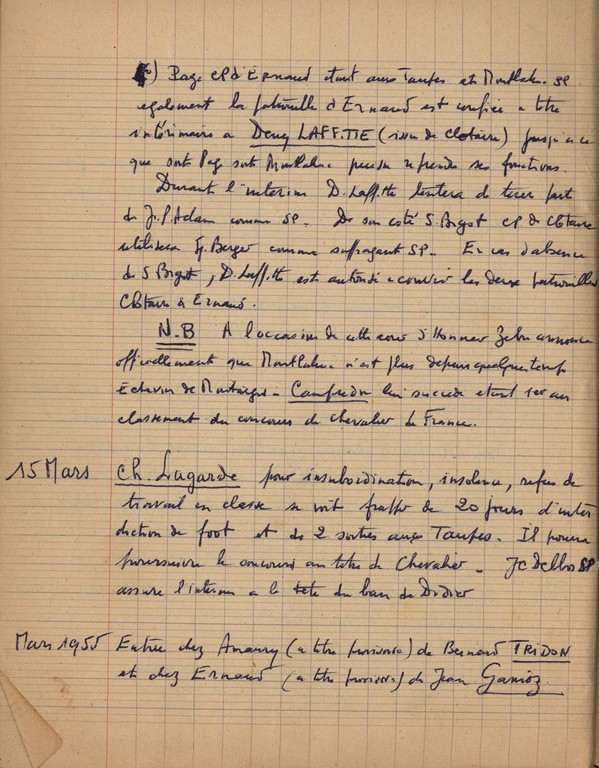 Page CP d'Ernaud étant aux Taupes et Montlahuc SP
également la patrouille d'Ernaud est confiée a titre
intérimaire a Deny LAFFITTE (issu de Clotaire) jusqu'a ce
que soit Pag soit Montlahuc puisse reprendre ses fonctions.
Durant l'interim D. Laffitte tentera de tirer parti
de J.P. Adam comme SP. De son coté S. Brigot CP de Clotaire
utilisera Berger comme suffragant SP. En cas d'absence
de S Brigot, D. Laffitte est autorisé a couvrir les deux patrouilles
Clotaire & Ernaud.
N.B A l'occasion de cette cour d'Honneur Zebu annonce
officiellement que Montlahuc n'est plus depuis quelque temps
Echevin de Montaigu - Campredon lui succède etant 1er au
classement du concours de chevalier de France.
15 Mars Ch. Lagarde pour insubordination, insolence, refus de
travail en classe se voit frappé de 20 jours d'inter
diction de foot et de 2 sorties aux Taupes. Il pourra
poursuivre le concours au titre de Chevalier - JC Delbos SP
assure l'interim a la tete du banc de Didier
Mars 1955 Entrée chez Amaury (a titre provisoire) de Bernard TRIDON
et chez Ernaud (a titre provisoire) de Jean Ganioz